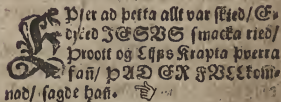 Þſer ad þetta allt var ſkied/ E-
dyked JESVS ſmacka ried/
Þroott og Lijfs Krapta þverra
fañ/ ÞAD ER FVLLkom-
nad/ ſagde hañ.